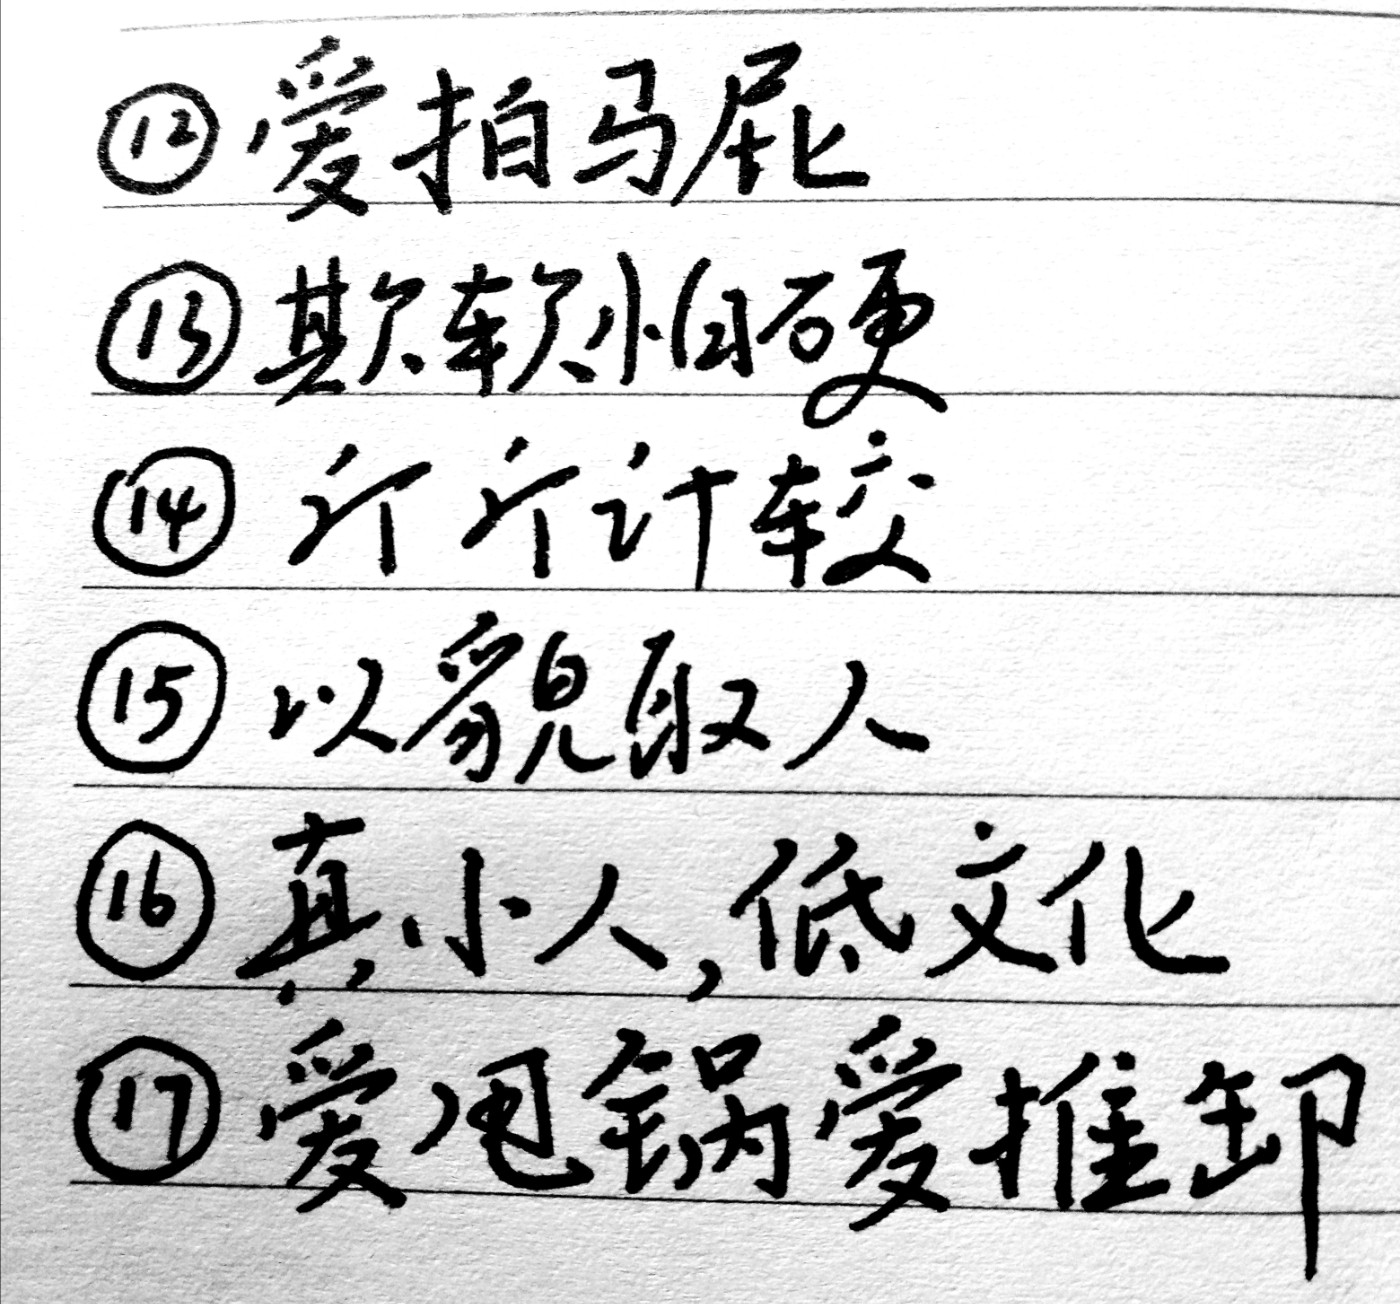 ⑫爱拍马屁
⑬欺软怕硬
⑭斤斤计较
⑮以貌取人
⑯真小人,低文化
⑰爱甩锅爱推卸